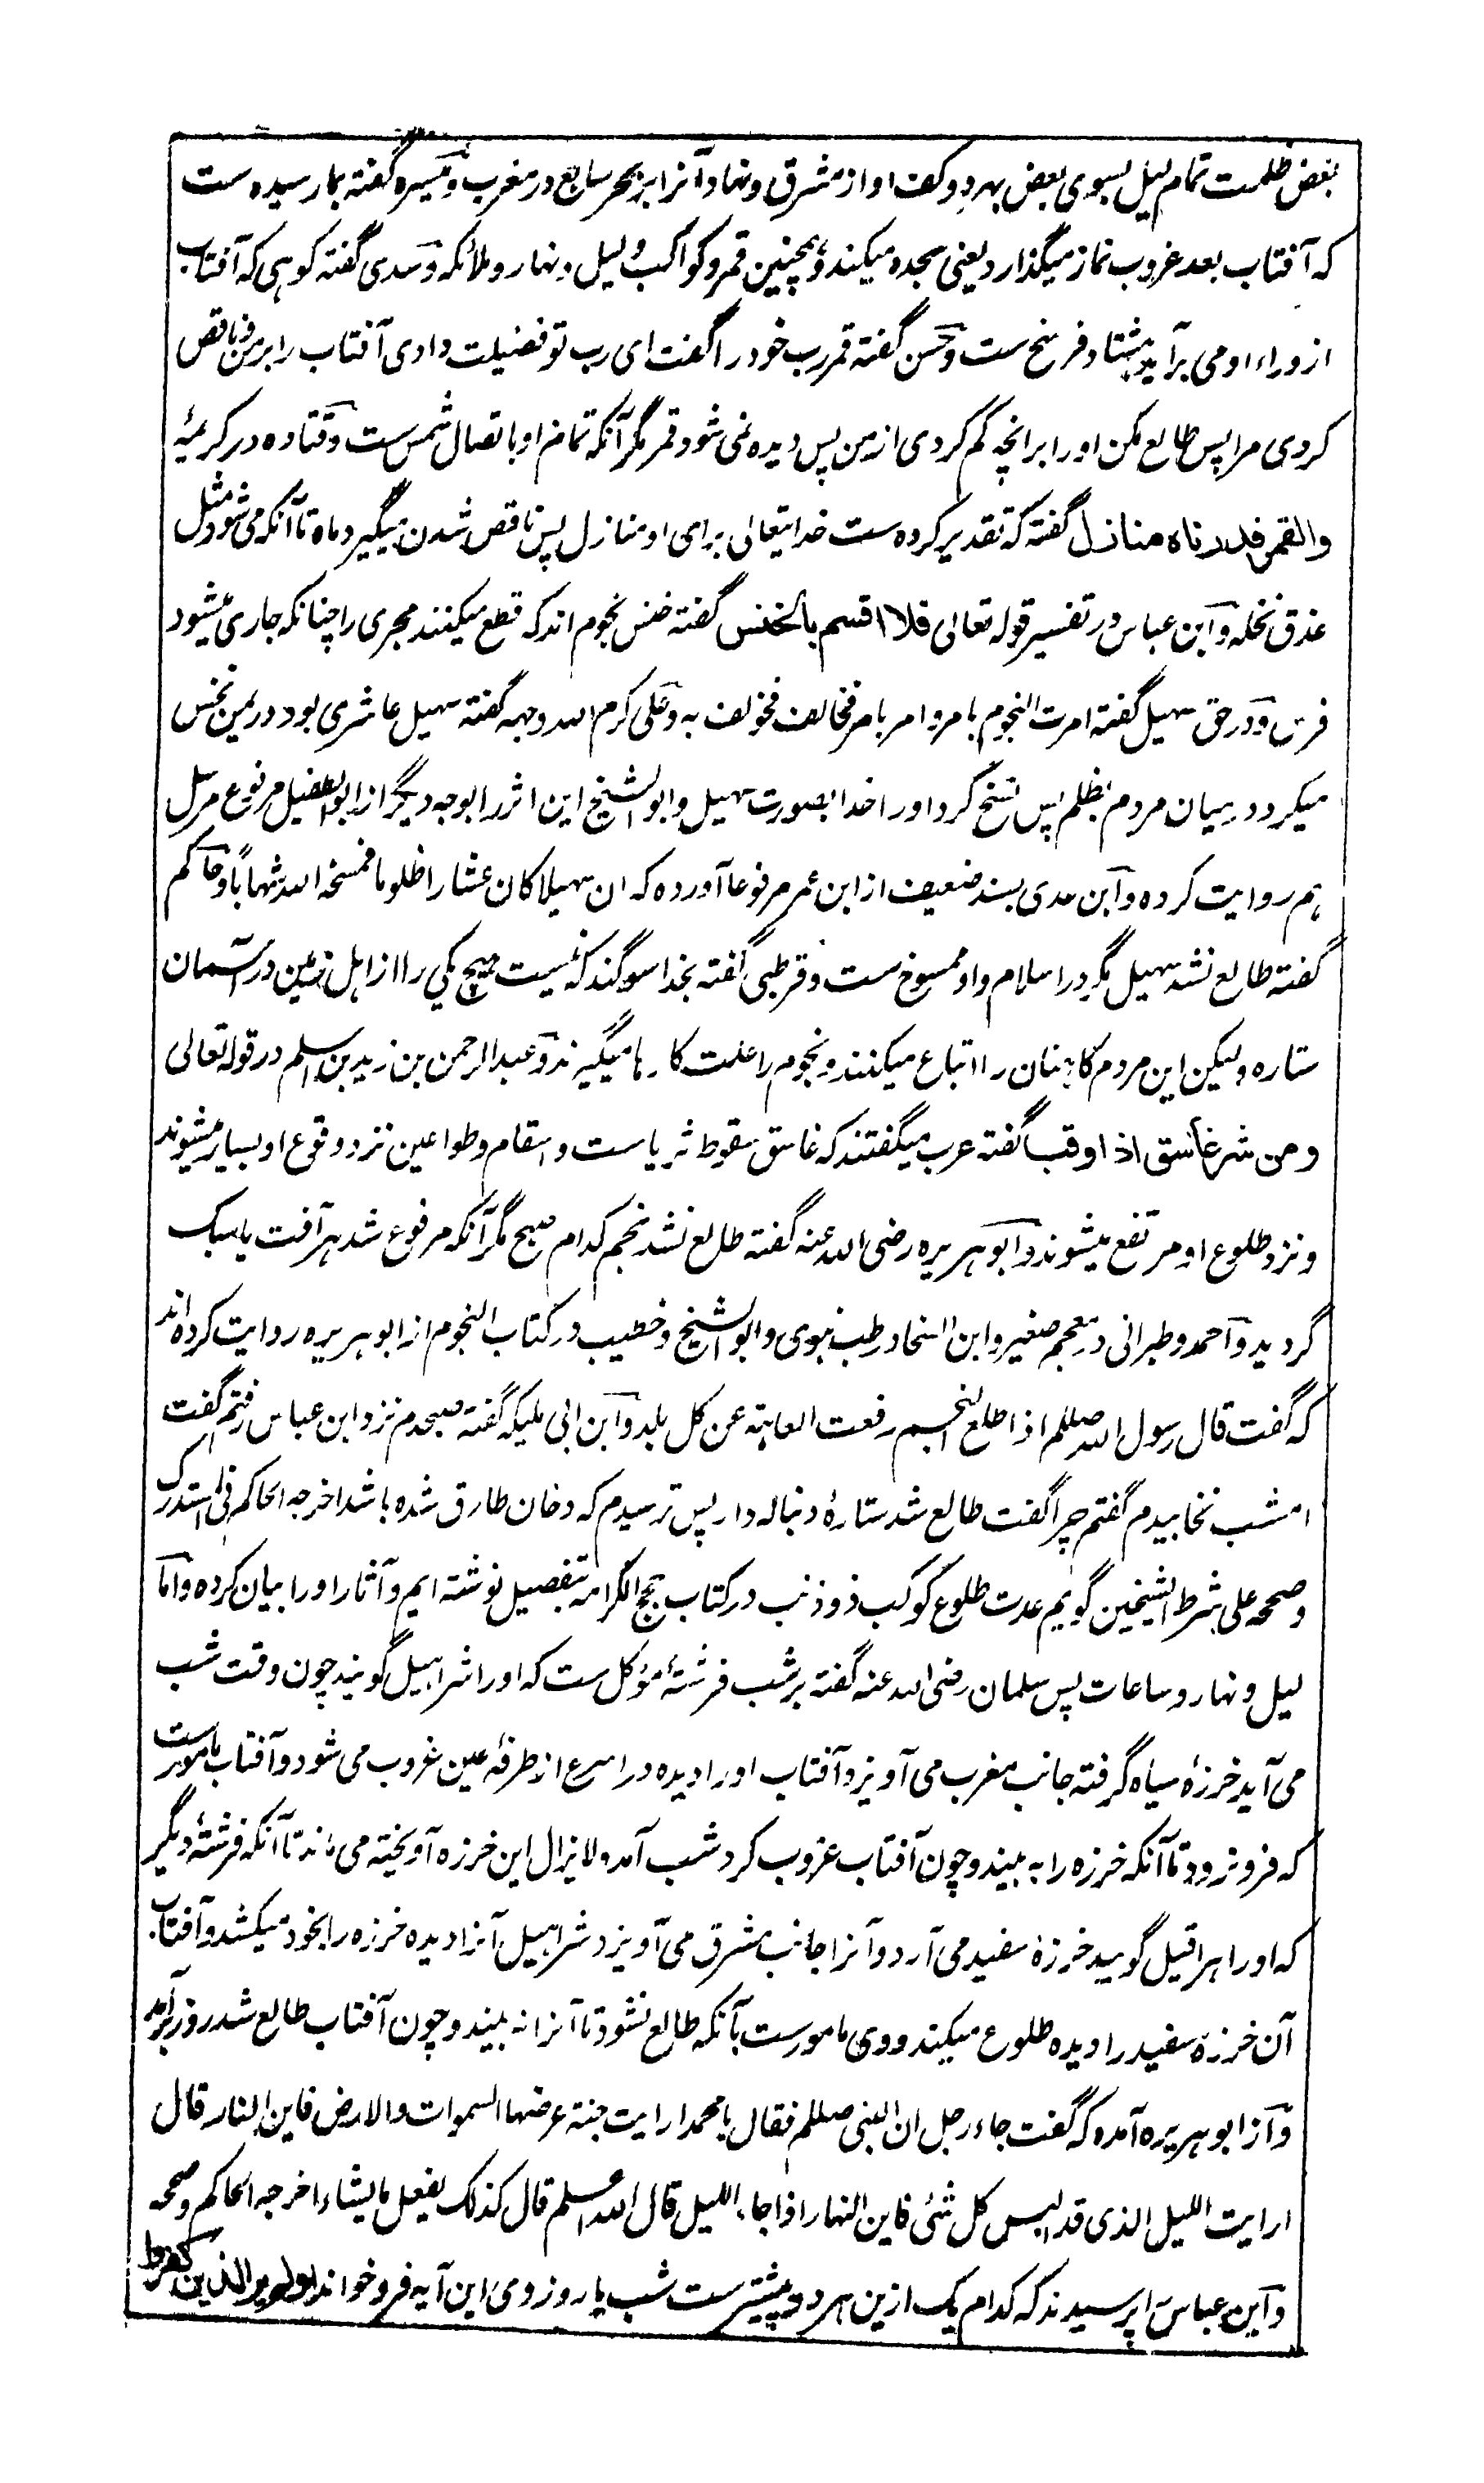 بعض ظلمت تمام لیل بسوی بعض بهردو کف او از مشرق و نهاد آنرا بر بحر سابع در مغرب و میسره گفته بما رسیده ست
که آفتاب بعد غروب نماز میگذارد یعنی سجده میکند و همچنین قمر و کواکب و لیل و نهار و ملائکه و سدی گفته کوهی که آفتاب
از وراء او می برآید هشتاد فرسخ ست و حسن گفته قمر رب خود را گفت ای رب تو فضیلت دادی آفتاب را بر من و ناقص
کردی مرا پس طالع مکن او را بر انچه کم کردی از من پس دیده نمی شود قمر مگر آنکه تمام او باتصال شمس ست و قتاده در کریمهٔ
والقمر قدرناه منازل گفته که تقدیر کرده ست خدایتعالی برای او منازل پس ناقص شدن میگیرد ماه تا آنکه می شود مثل
عذق نخله و ابن عباس در تفسیر قوله تعالی فلا اقسم بالخنس گفته خنس نجوم اند که قطع میکنند مجری را چنانکه جاری میشود
فرس و در حق سهیل گفته امرت النجوم بامر و امر بامر فخالف فخولف به و علی کرم الله وجهه گفته سهیل عاشری بود در یمن نخس
میکرد در میان مردم بظلم پس مسخ کرد او را خدا بصورت سهیل و ابو الشیخ این اثر را بوجه دیگر از ابو الطفیل مرفوع مرسل
هم روایت کرده و ابن عدی بسند ضعیف از ابن عمر مرفوعا آورده که ان سهیلا کان عشارا ظلوما فمسخه الله شهاباً و حاکم
گفته طالع نشد سهیل مگر در اسلام و او ممسوخ ست و قرظی گفته بخدا سوگند که نیست هیچ یکی را از اهل زمین در آسمان
ستاره و لیکن این مردم کاهنان را اتباع میکنند و نجوم را علت کارها میگیرند و عبدالرحمن بن زید بن اسلم در قوله تعالی
ومن شر غاسق اذا وقب گفته عرب میگفتند که غاسق سقوط ثریاست و اسقام و طواعین نزد وقوع او بسیار میشوند
و نزد طلوع او مرتفع میشوند و ابو هریره رضی الله عنه گفته طالع نشد نجم کدام صبح مگر آنکه مرفوع شد هر آفت یا سبک
گردید و احمد و طبرانی در معجم صغیر و ابن السنی در طب نبوی و ابو الشیخ و خطیب در کتاب النجوم از ابو هریره روایت کرده اند
که گفت قال رسول الله صللم اذا طلع النجم رفعت العاهة عن کل بلد و ابن ابی ملیکه گفته صبحدم نزد ابن عباس رفتم گفت
امشب نخابیدم گفتم چرا گفت طالع شد ستارهٔ دنباله دار پس ترسیدم که دخان طارق شده باشد اخرجه الحاکم فی المستدرک
و صححه علی شرط الشیخین گویم عدت طلوع کوکب ذو ذنب در کتاب حجج الکرامه بتفصیل نوشته ایم و آثار او را بیان کرده و اما
لیل و نهار و ساعات پس سلمان رضی الله عنه گفته بر شب فرشتهٔ مؤکل ست که او را شراهیل گویند چون وقت شب
می آید خرزهٔ سیاه گرفته جانب مغرب می آویزد و آفتاب او را دیده در اسرع از طرفهٔ عین غروب می شود و آفتاب مامورست
که فرو نرود تا آنکه خرزه را به بیند و چون آفتاب غروب کرد شب آمد و لا یزال این خرزه آویخته می ماند تا آنکه فرشتهٔ دیگر
که او را هراقیل گویند خرزهٔ سفید می آرد و آنرا جانب مشرق می آویزد شراهیل آنرا دیده خرزه را بخود میکشد و آفتاب
آن خرزهٔ سفید را دیده طلوع میکند و وی مامورست بآنکه طالع نشود تا آنرا نه بیند و چون آفتاب طالع شد روز برآمد
و از ابو هریره آمده که گفت جاء رجل ان النبی صللم فقال یا محمد ارایت جنة عرضها السموات والارض فاین النار قال
ارایت اللیل الذی قد البس کل شئ فاین النهار اذا جاء اللیل قال الله اعلم قال کذلک یفعل ما یشاء اخرجه الحاکم و صححه
و ابن عباس را پرسیدند که کدام یک ازین هر دو پیشترست شب یا روز وی این آیه فرو خواند اولم یر الذین کفروا